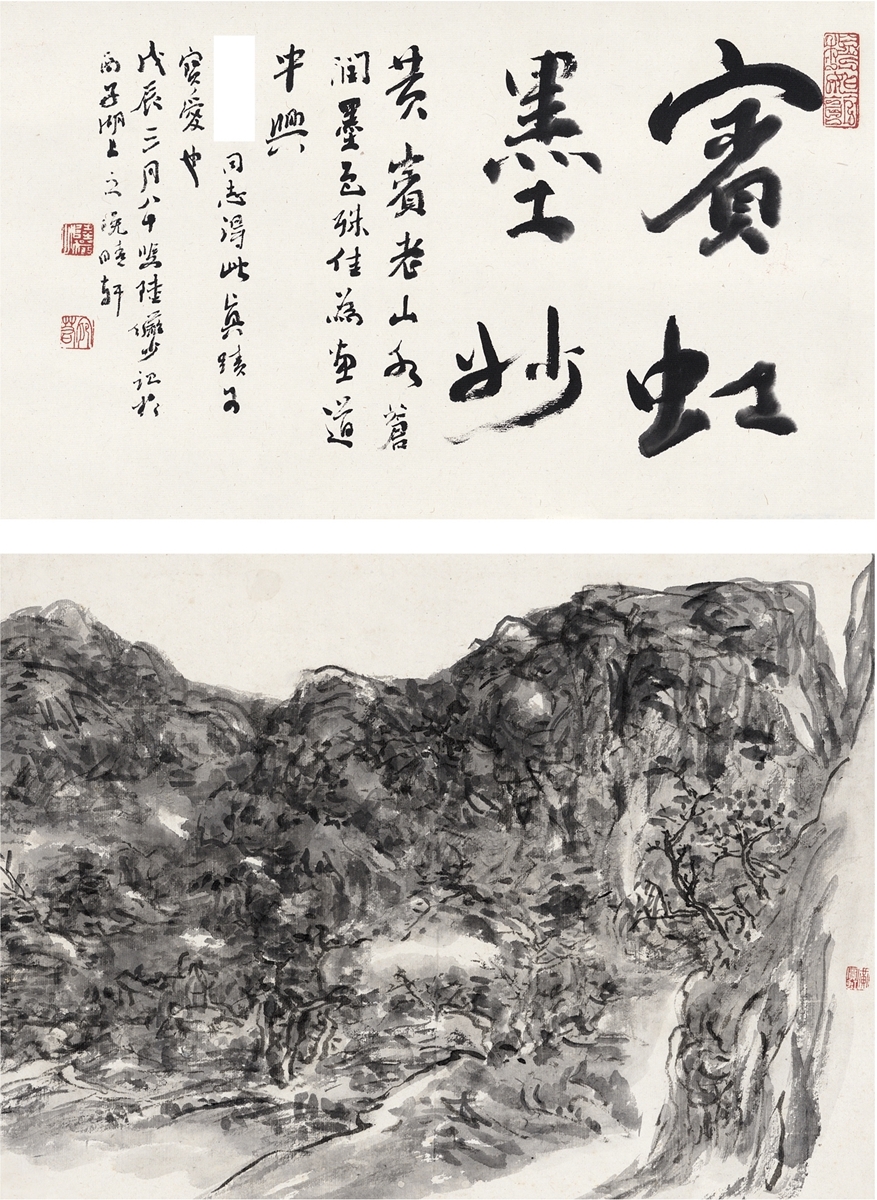 賓虹
墨妙
黄賓老山水蒼
潤墨色殊佳為畫道
中興
同志得此真蹟可
寶愛也
戊辰三月八十叟陸儼少記於
西子湖上之晚晴軒